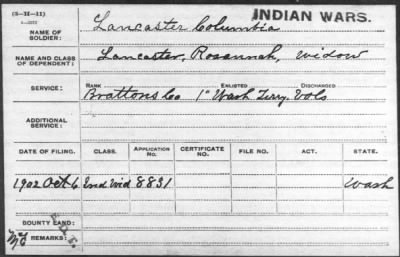 (3-II-II)
INDIAN WARS.
NAME OF SOLDIER: Lancaster Columbia
NAME AND CLASS OF DEPENDENT: Lancaster, Rosannah, widow
RANK ENLISTED DISCHARGED
SERVICE: Brattons Co 1" Wash Terry. Vols
ADDITIONAL SERVICE:
DATE OF FILING. CLASS. APPLICATION No. CERTIFICATE No. FILE NO. ACT. STATE.
1902 Oct 6 Ind Wid 8831 Wash
BOUNTY LAND:
REMARKS: